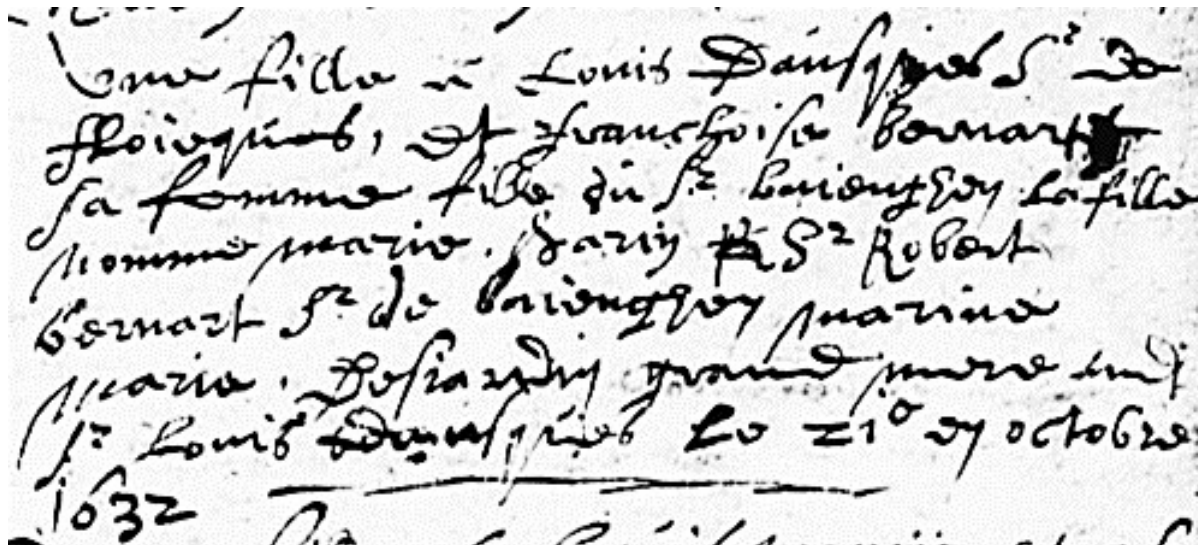 une fille a Louis Dausques Sr de
floieques, et franchoise bernart
sa femme fille du Sr baienghen la fille
nomme marie. parin Sr Robert
bernart Sr de baienghen marine
marie. Desiardin grand mere audi
Sr Louis dausques le 21e en octobre
1632